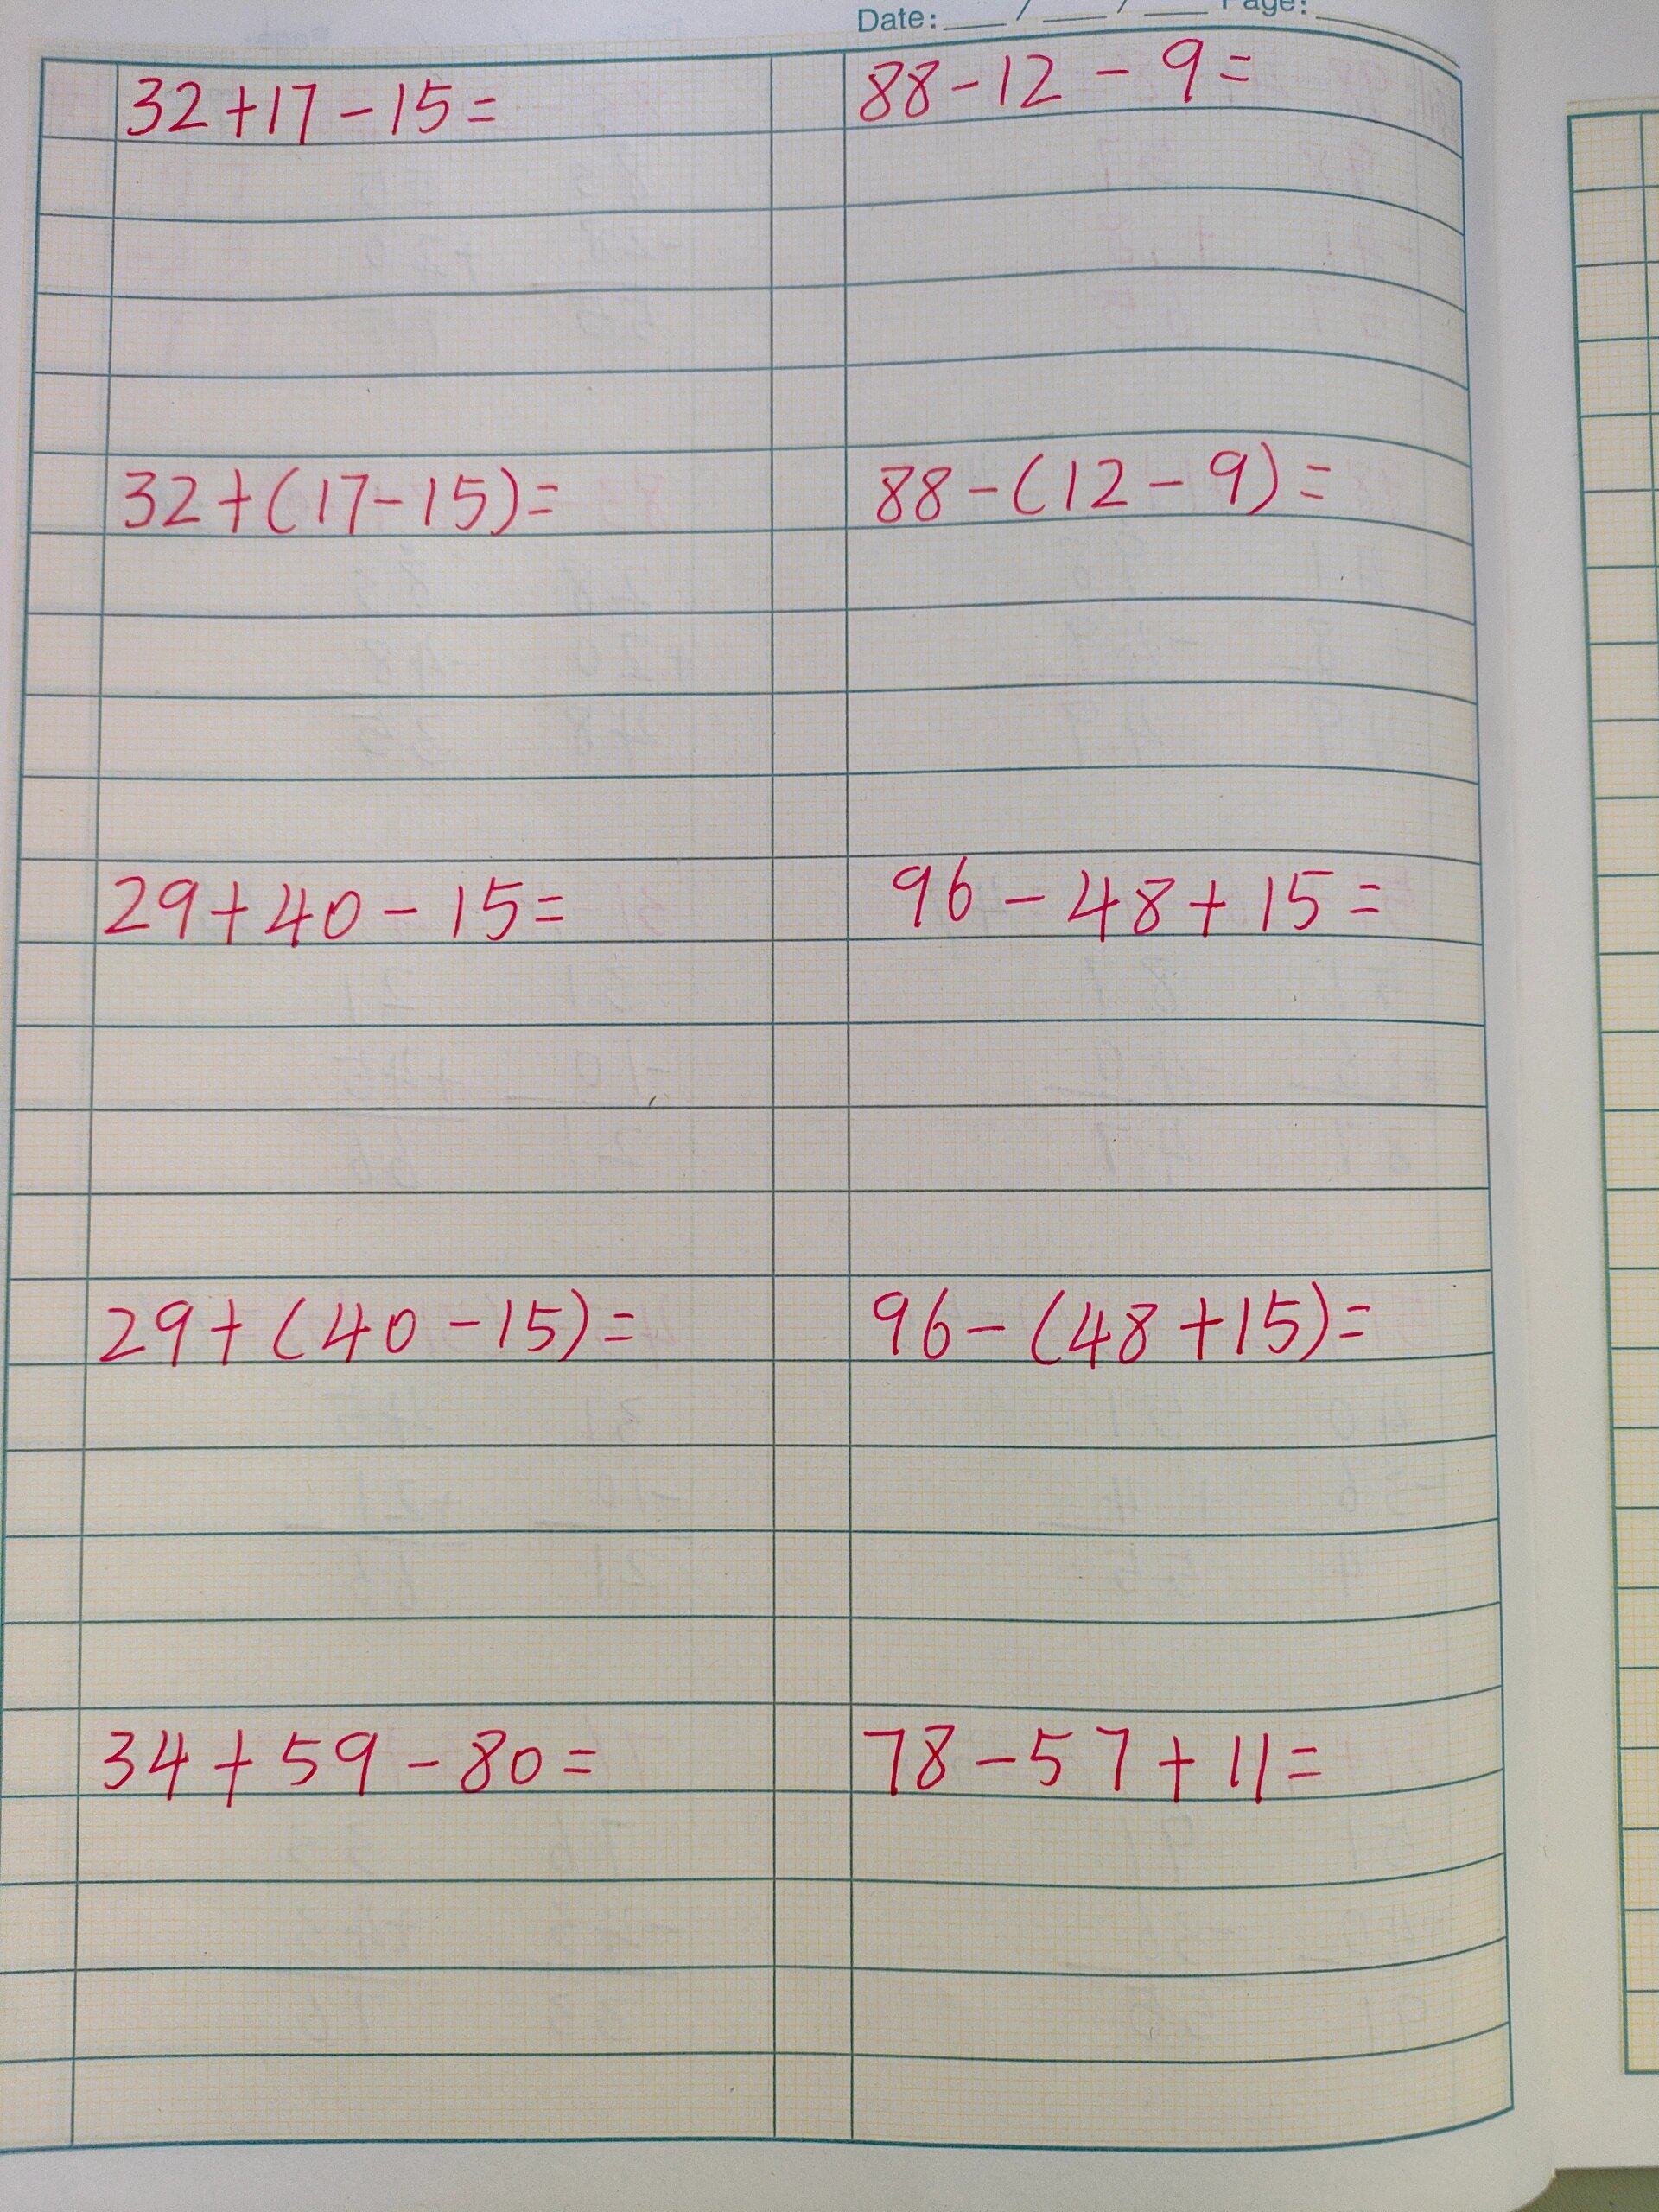 Date: ___ / ___ / ___ Page: ___
32+17-15=
88-12-9=
32+(17-15)=
88-(12-9)=
29+40-15=
96-48+15=
29+(40-15)=
96-(48+15)=
34+59-80=
78-57+11=